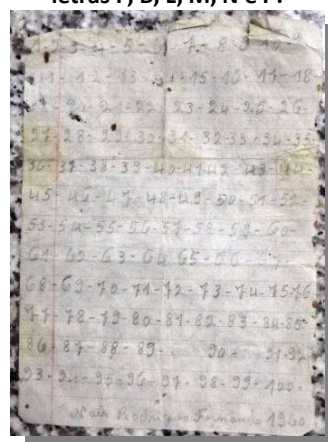 letras P, B, L, M, N e FF
1-2-3-4-5-6-7-8-9-10-
11-12-13-14-15-16-17-18-
20-21-22-23-24-25-26-
27-28-29-30-31-32-33-34-35
36-37-38-39-40-41-42-43-44-
45-46-47-48-49-50-51-52-
53-54-55-56-57-58-59-60-
61-62-63-64-65-66-67-
68-69-70-71-72-73-74-75-76
77-78-79-80-81-82-83-84-85-
86-87-88-89- 90- 91-92
93-94-95-96-97-98-99-100-
Nair Rodrigues Fernandes 1960